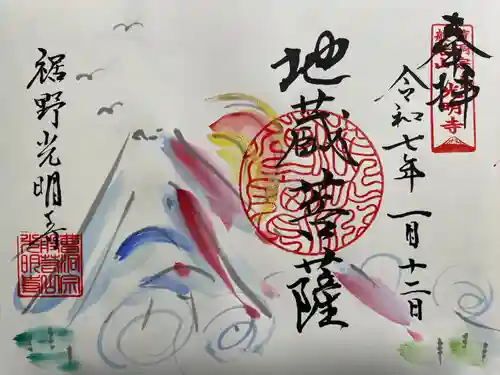 奉拝
曹洞宗
龍雲山 光明寺
令和七年 一月十二日
地蔵菩薩
裾野光明寺